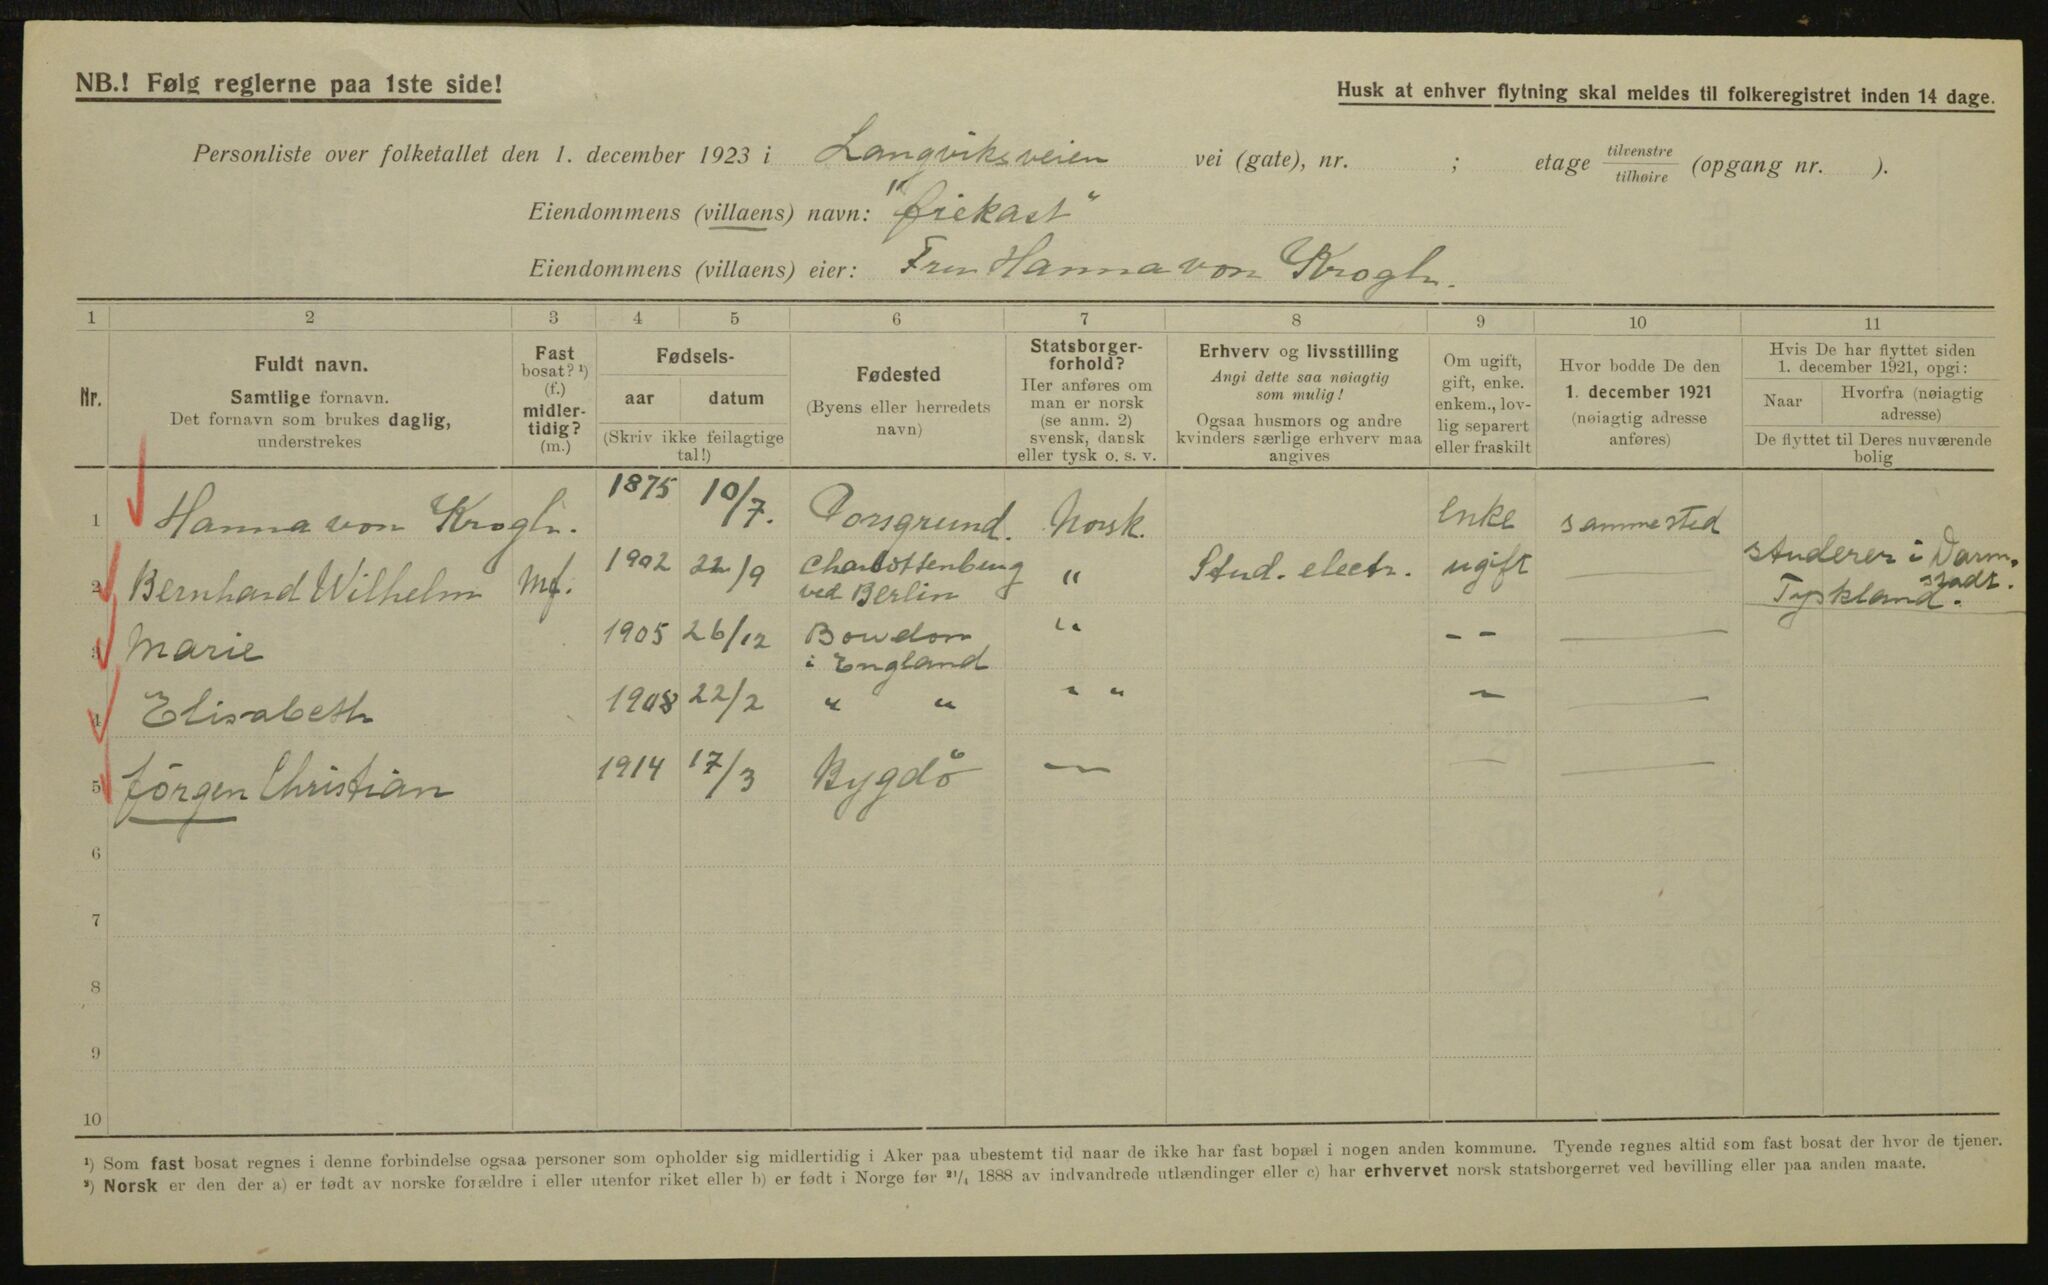 NB.! Følg reglerne paa 1ste side!
Husk at enhver flytning skal meldes til folkeregistret inden 14 dage.
Personliste over folketallet den 1. december 1923 i Langviksveien vei (gate), nr. ; etage tilvenstre/tilhøire (opgang nr. ).
Eiendommens (villaens) navn: "Ørekast"
Eiendommens (villaens) eier: Fru Hanna von Krogh.
1 2 3 4 5 6 7 8 9 10 11
Nr.
Fuldt navn.
Samtlige fornavn.
Det fornavn som brukes daglig,
understrekes
Fast
bosat? ¹)
(f.)
midler-
tidig?
(m.)
Fødsels-
aar datum
(Skriv ikke feilagtige
tal!)
Fødested
(Byens eller herredets
navn)
Statsborger-
forhold?
Her anføres om
man er norsk
(se anm. 2)
svensk, dansk
eller tysk o. s. v.
Erhverv og livsstilling
Angi dette saa nøiagtig
som mulig!
Ogsaa husmors og andre
kvinders særlige erhverv maa
angives
Om ugift,
gift, enke.
enkem., lov-
lig separert
eller fraskilt
Hvor bodde De den
1. december 1921
(nøiagtig adresse
anføres)
Hvis De har flyttet siden
1. december 1921, opgi:
Naar
Hvorfra (nøiagtig
adresse)
De flyttet til Deres nuværende
bolig
1 Hanna von Krogh. 1875 10/7. Porsgrund. Norsk. Enke sammested
2 Bernhard Wilhelm Mf. 1902 22/9 Charlottenburg
ved Berlin " Stud. electr. ugift — studerer i Darm-
stadt.
Tyskland.
3 Marie 1905 26/12 Bowdon
i England " - - —
4 Elisabeth 1908 22/2 " " " " - —
5 Jörgen Christian 1914 17/3 Bygdö — — —
6
7
8
9
10
¹) Som fast bosat regnes i denne forbindelse ogsaa personer som opholder sig midlertidig i Aker paa ubestemt tid naar de ikke har fast bopæl i nogen anden kommune. Tyende regnes altid som fast bosat der hvor de tjener.
²) Norsk er den der a) er født av norske forældre i eller utenfor riket eller b) er født i Norge før ²¹/₄ 1888 av indvandrede utlændinger eller c) har erhvervet norsk statsborgerret ved bevilling eller paa anden maate.